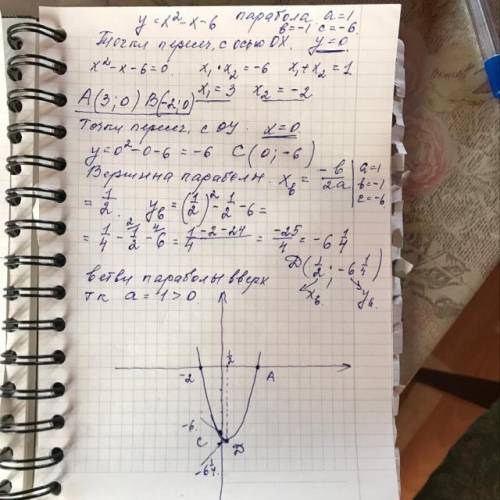 y = x² - x - 6 парабола a = 1
b = -1 c = -6.
Точки пересеч. с осью OX. y = 0
x² - x - 6 = 0. x₁ · x₂ = -6 x₁ + x₂ = 1
A(3; 0) B(-2; 0) x₁ = 3 x₂ = -2
Точки пересеч. с OY. x = 0
y = 0² - 0 - 6 = -6 C(0; -6)
Вершина параболы. xв = -b/2a | a = 1 b = -1 c = -6
= 1/2. yв = (1/2)² - 1/2 - 6 =
= 1/4 - 1/2 - 6 = (1 - 2 - 24)/4 = -25/4 = -6 1/4
D(1/2; -6 1/4)
ветви параболы вверх xв yв
тк a = 1 > 0.
1/2
-2 A
-6
C D
-6 1/4